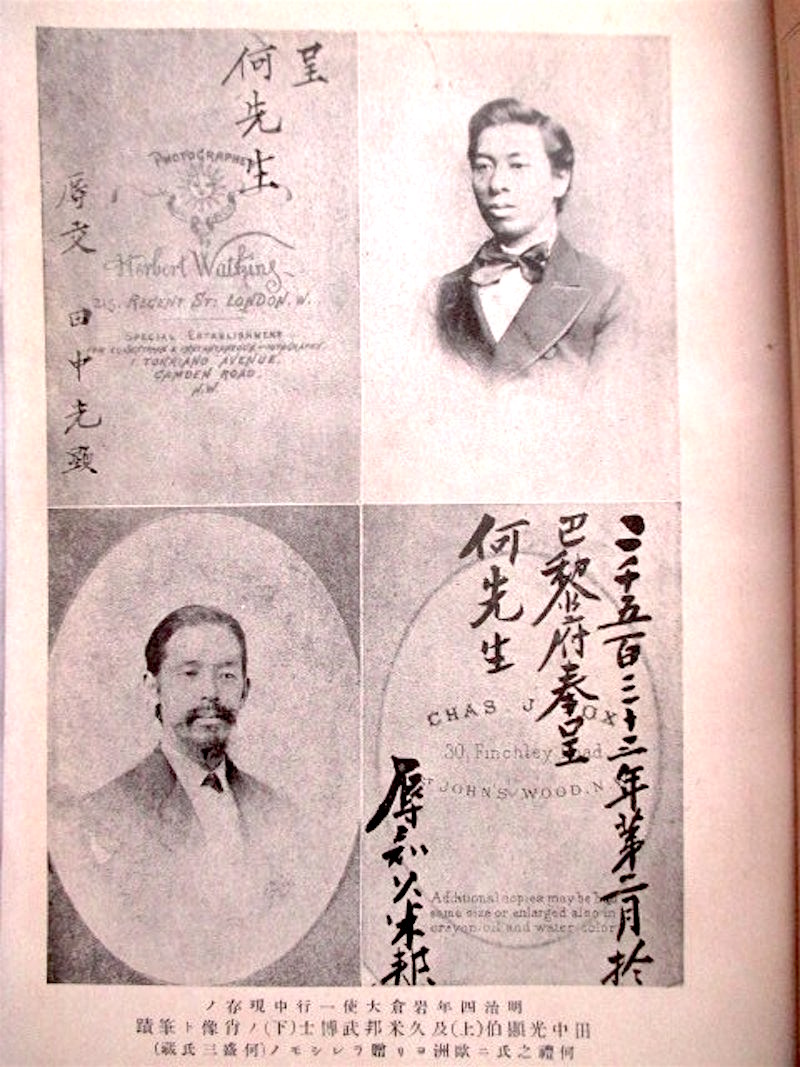 呈
何先生
辱交 田中光顯
PHOTOGRAPHER
Herbert Watkins
215, REGENT ST: LONDON. W.
SPECIAL ESTABLISHMENT
PHOTOGRAPHY.
1 TORRIANO AVENUE.
CAMDEN ROAD.
N.W.
二千五百三十三年第二月於
巴黎府奉呈
何先生
辱知久米邦
CHAS. J
30, Finchley Road
ST JOHN'S WOOD, N.
Additional copies may be had
same size or enlarged also in
crayon, oil and water color
明治四年岩倉大使一行中現存ノ
田中光顯伯(上)及久米邦武博士(下)ノ肖像ト筆蹟
何禮之氏ニ歐洲ヨリ贈ラレシモノ(何盛三氏藏)